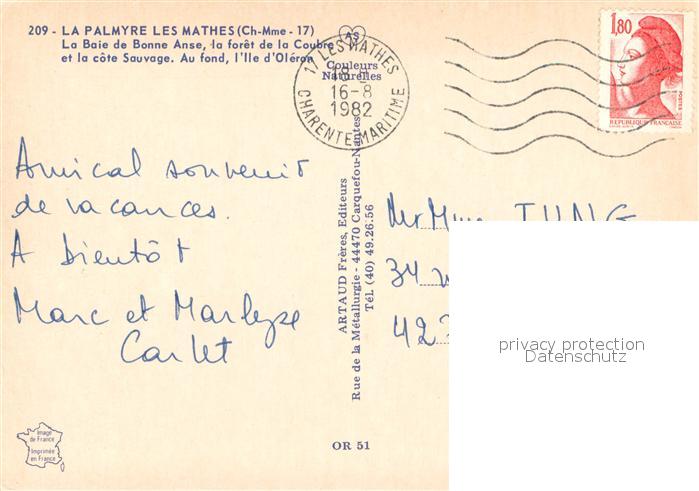 209 - LA PALMYRE LES MATHES (Ch-Mme - 17)
La Baie de Bonne Anse, la forêt de la Coubre
et la côte Sauvage. Au fond, l'Ile d'Oléron
AS
Couleurs
Naturelles
17 LES MATHES
18 H
16-8
1982
CHARENTE-MARITIME
1,80
POSTES
REPUBLIQUE FRANCAISE
Amical souvenir
de vacances.
A bientôt
Marc et Marlyse
Carlet
ARTAUD Frères, Editeurs
Rue de la Métallurgie - 44470 Carquefou-Nantes
Tél. (40) 49.26.56
Mr Mme JUNG
34
42
privacy protection
Datenschutz
Image
de France
Imprimée
en France
OR 51